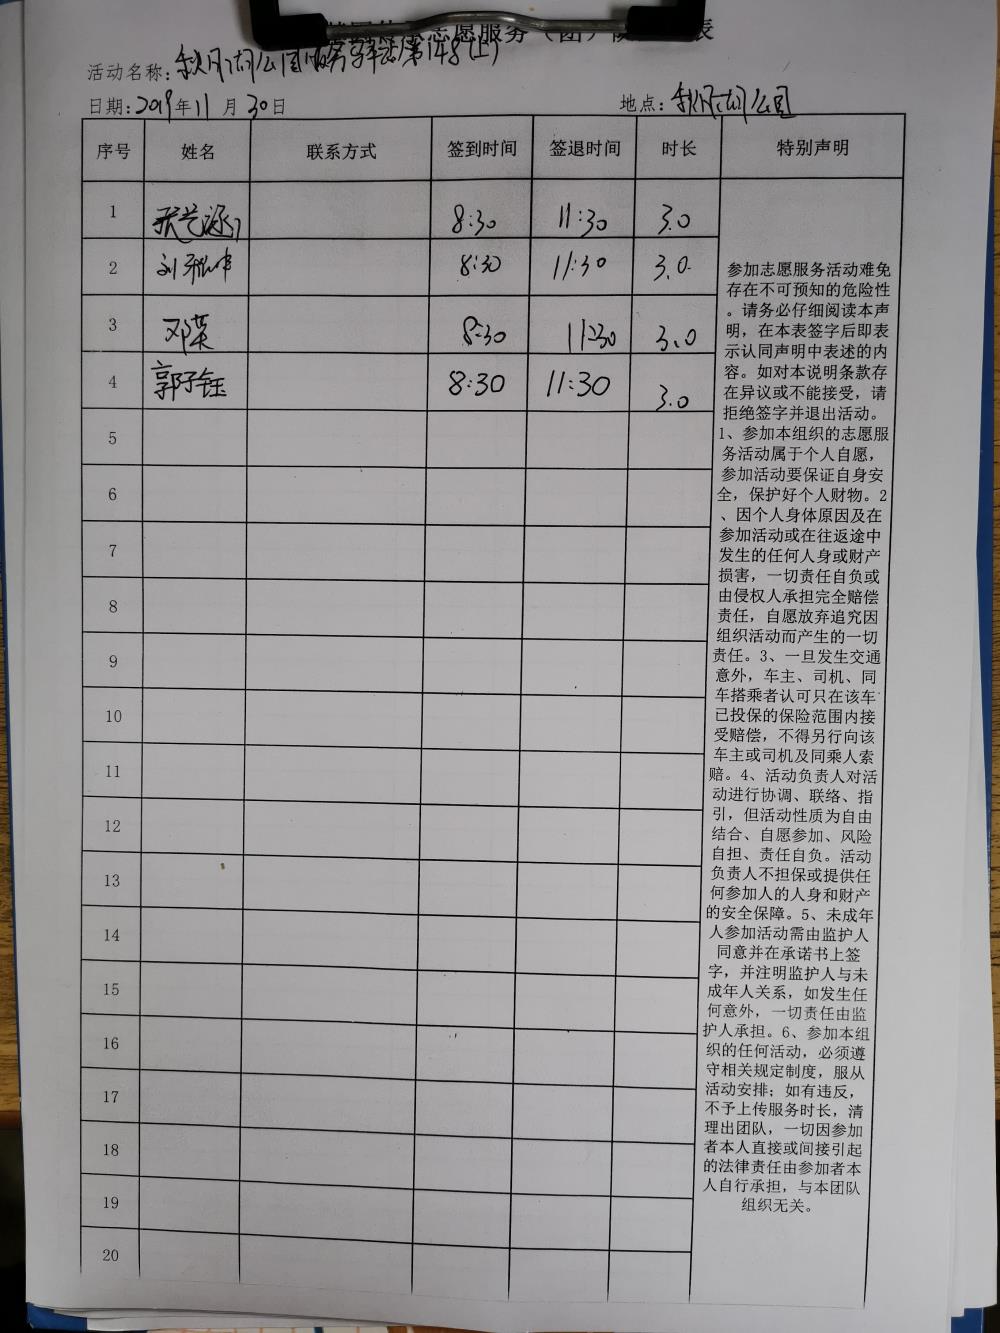 志愿服务（团）
表
活动名称：秋风湖公园服务驿站第148(上)
日期：2019年11月30日 地点：秋风湖公园
序号 姓名 联系方式 签到时间 签退时间 时长 特别声明
1 8:30 11:30 3.0
2 8:30 11:30 3.0
3 邓英 8:30 11:30 3.0
4 郭子钰 8:30 11:30 3.0
5
6
7
8
9
10
11
12
13
14
15
16
17
18
19
20
参加志愿服务活动难免
存在不可预知的危险性
。请务必仔细阅读本声
明，在本表签字后即表
示认同声明中表述的内
容。如对本说明条款存
在异议或不能接受，请
拒绝签字并退出活动。
1、参加本组织的志愿服
务活动属于个人自愿，
参加活动要保证自身安
全，保护好个人财物。2
、因个人身体原因及在
参加活动或在往返途中
发生的任何人身或财产
损害，一切责任自负或
由侵权人承担完全赔偿
责任，自愿放弃追究因
组织活动而产生的一切
责任。3、一旦发生交通
意外，车主、司机、同
车搭乘者认可只在该车
已投保的保险范围内接
受赔偿，不得另行向该
车主或司机及同乘人索
赔。4、活动负责人对活
动进行协调、联络、指
引，但活动性质为自由
结合、自愿参加、风险
自担、责任自负。活动
负责人不担保或提供任
何参加人的人身和财产
的安全保障。5、未成年
人参加活动需由监护人
同意并在承诺书上签
字，并注明监护人与未
成年人关系，如发生任
何意外，一切责任由监
护人承担。6、参加本组
织的任何活动，必须遵
守相关规定制度，服从
活动安排；如有违反，
不予上传服务时长，清
理出团队，一切因参加
者本人直接或间接引起
的法律责任由参加者本
人自行承担，与本团队
组织无关。